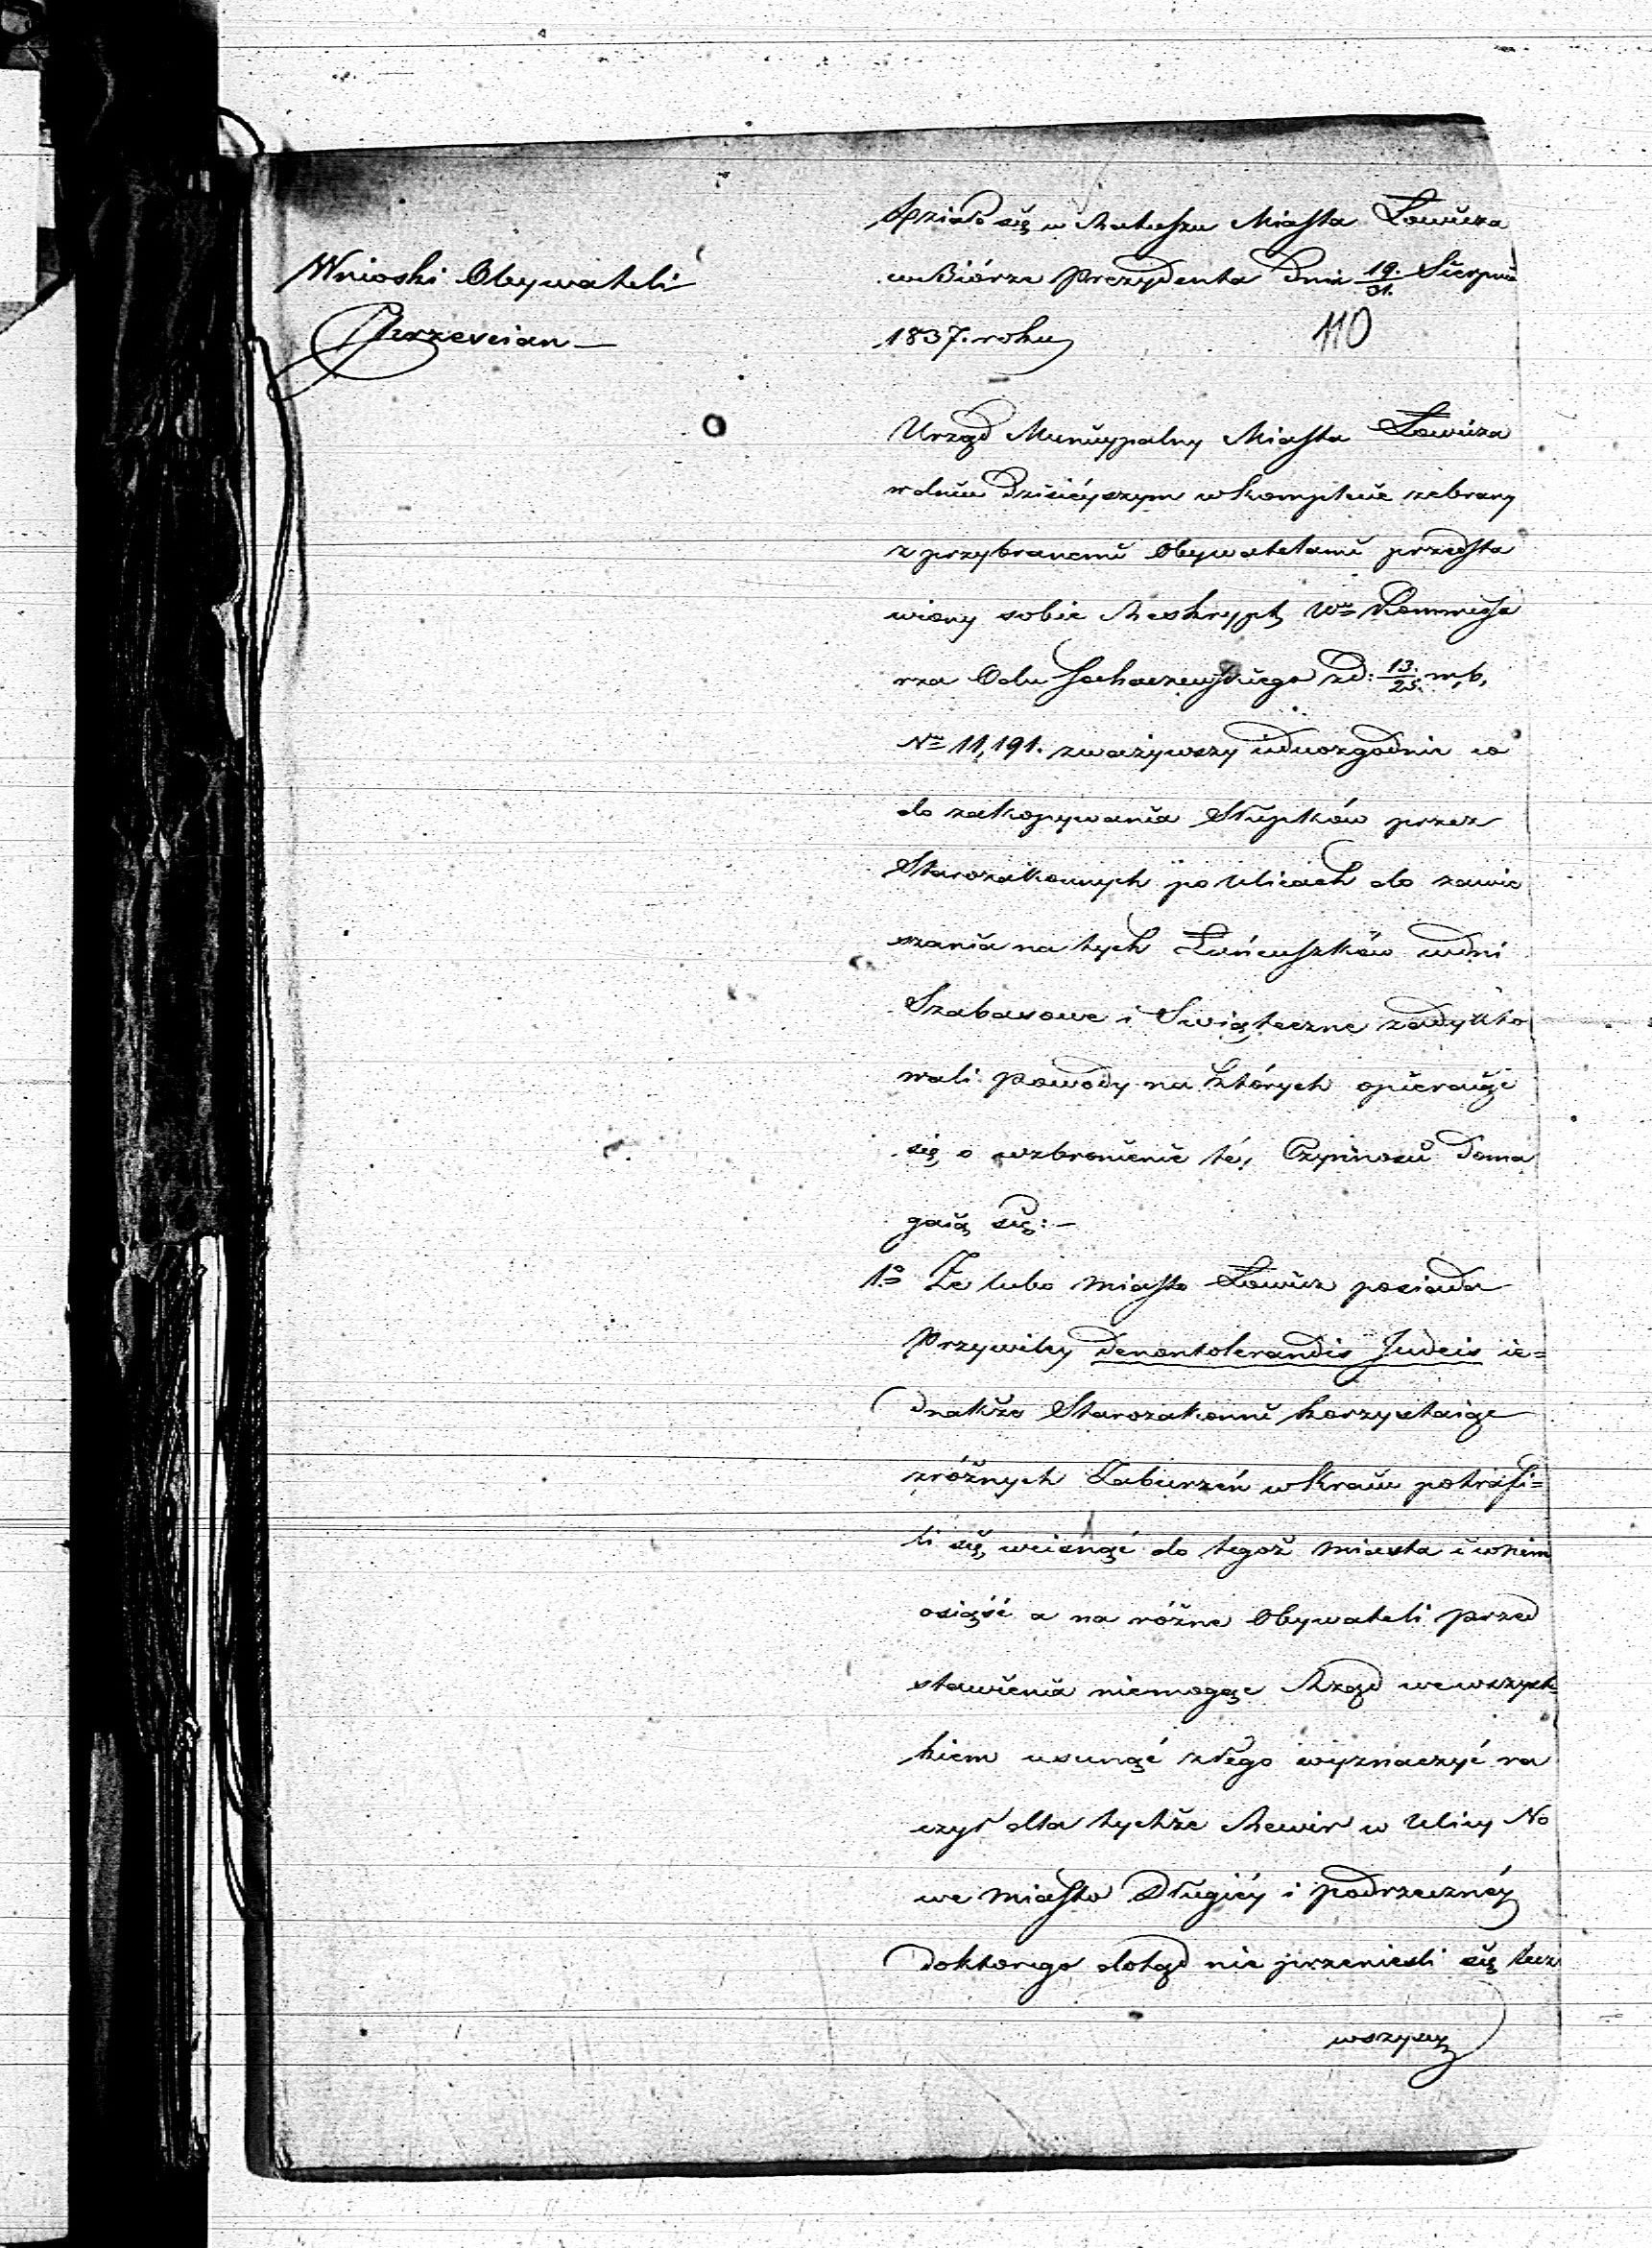 Wnioski Obywateli
Chrzescian —
Działo się w Ratuszu Miasta Łowicza
w Biórze Prezydenta dnia 19./31. Sierpnia
1837. roku
110
Urząd Municypalny Miasta Łowicza
w dniu dzisieyszym w komplecie zebrany
z przybranemi Obywatelami przedsta
wiony sobie Reskrypt Wo Kommissa
rza Obdu Sochaczewskiego z d: 13./25. m, b,
No 11,191. zważywszy iednozgodnie co
do zakopywania Słupków przez
Starozakonnych po Ulicach do zawie
szania na tych Łańcuszków w dni
Szabasowe i Swiąteczne zadykto
wali powody na których opieraiąc
się o wzbronienie téy Czynności doma
gaią się: —
1o Że lubo Miasto Łowicz posiada
Przywiley denontolerandis Judeis ie=
dnakże Starozakonni korzystaiąc
z różnych Zaburzeń w Kraiu potrafi=
li się wcisnąć do tegoż Miasta i w niem
osiąść a na różne Obywateli przed
stawienia niemogąc Rząd we wszyst=
kiem usunąć złego wyznaczyć ra
czył dla tychże Rewir w Ulicy No
we Miasto Długiéy i podrzecznéy
do którego dotąd nie przenieśli się lecz
wszyscy